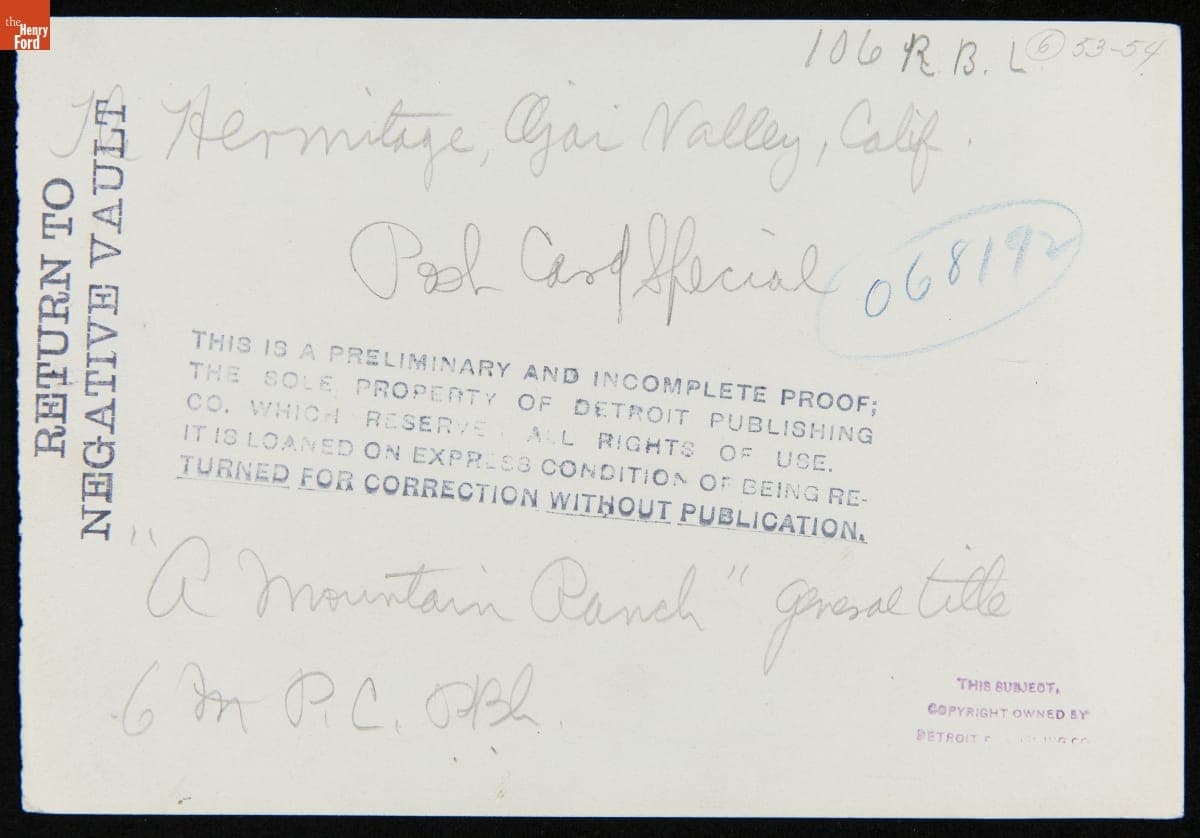 the
Henry
Ford
106 R.B.L 6 53-54
Hermitage, Ojai Valley, Calif.
RETURN TO
NEGATIVE VAULT
Post Card Special
068192
THIS IS A PRELIMINARY AND INCOMPLETE PROOF;
THE SOLE PROPERTY OF DETROIT PUBLISHING
CO. WHICH RESERVE ALL RIGHTS OF USE.
IT IS LOANED ON EXPRESS CONDITION OF BEING RE-
TURNED FOR CORRECTION WITHOUT PUBLICATION.
"A Mountain Ranch" general title
6 M P.C.
THIS SUBJECT,
COPYRIGHT OWNED BY
DETROIT